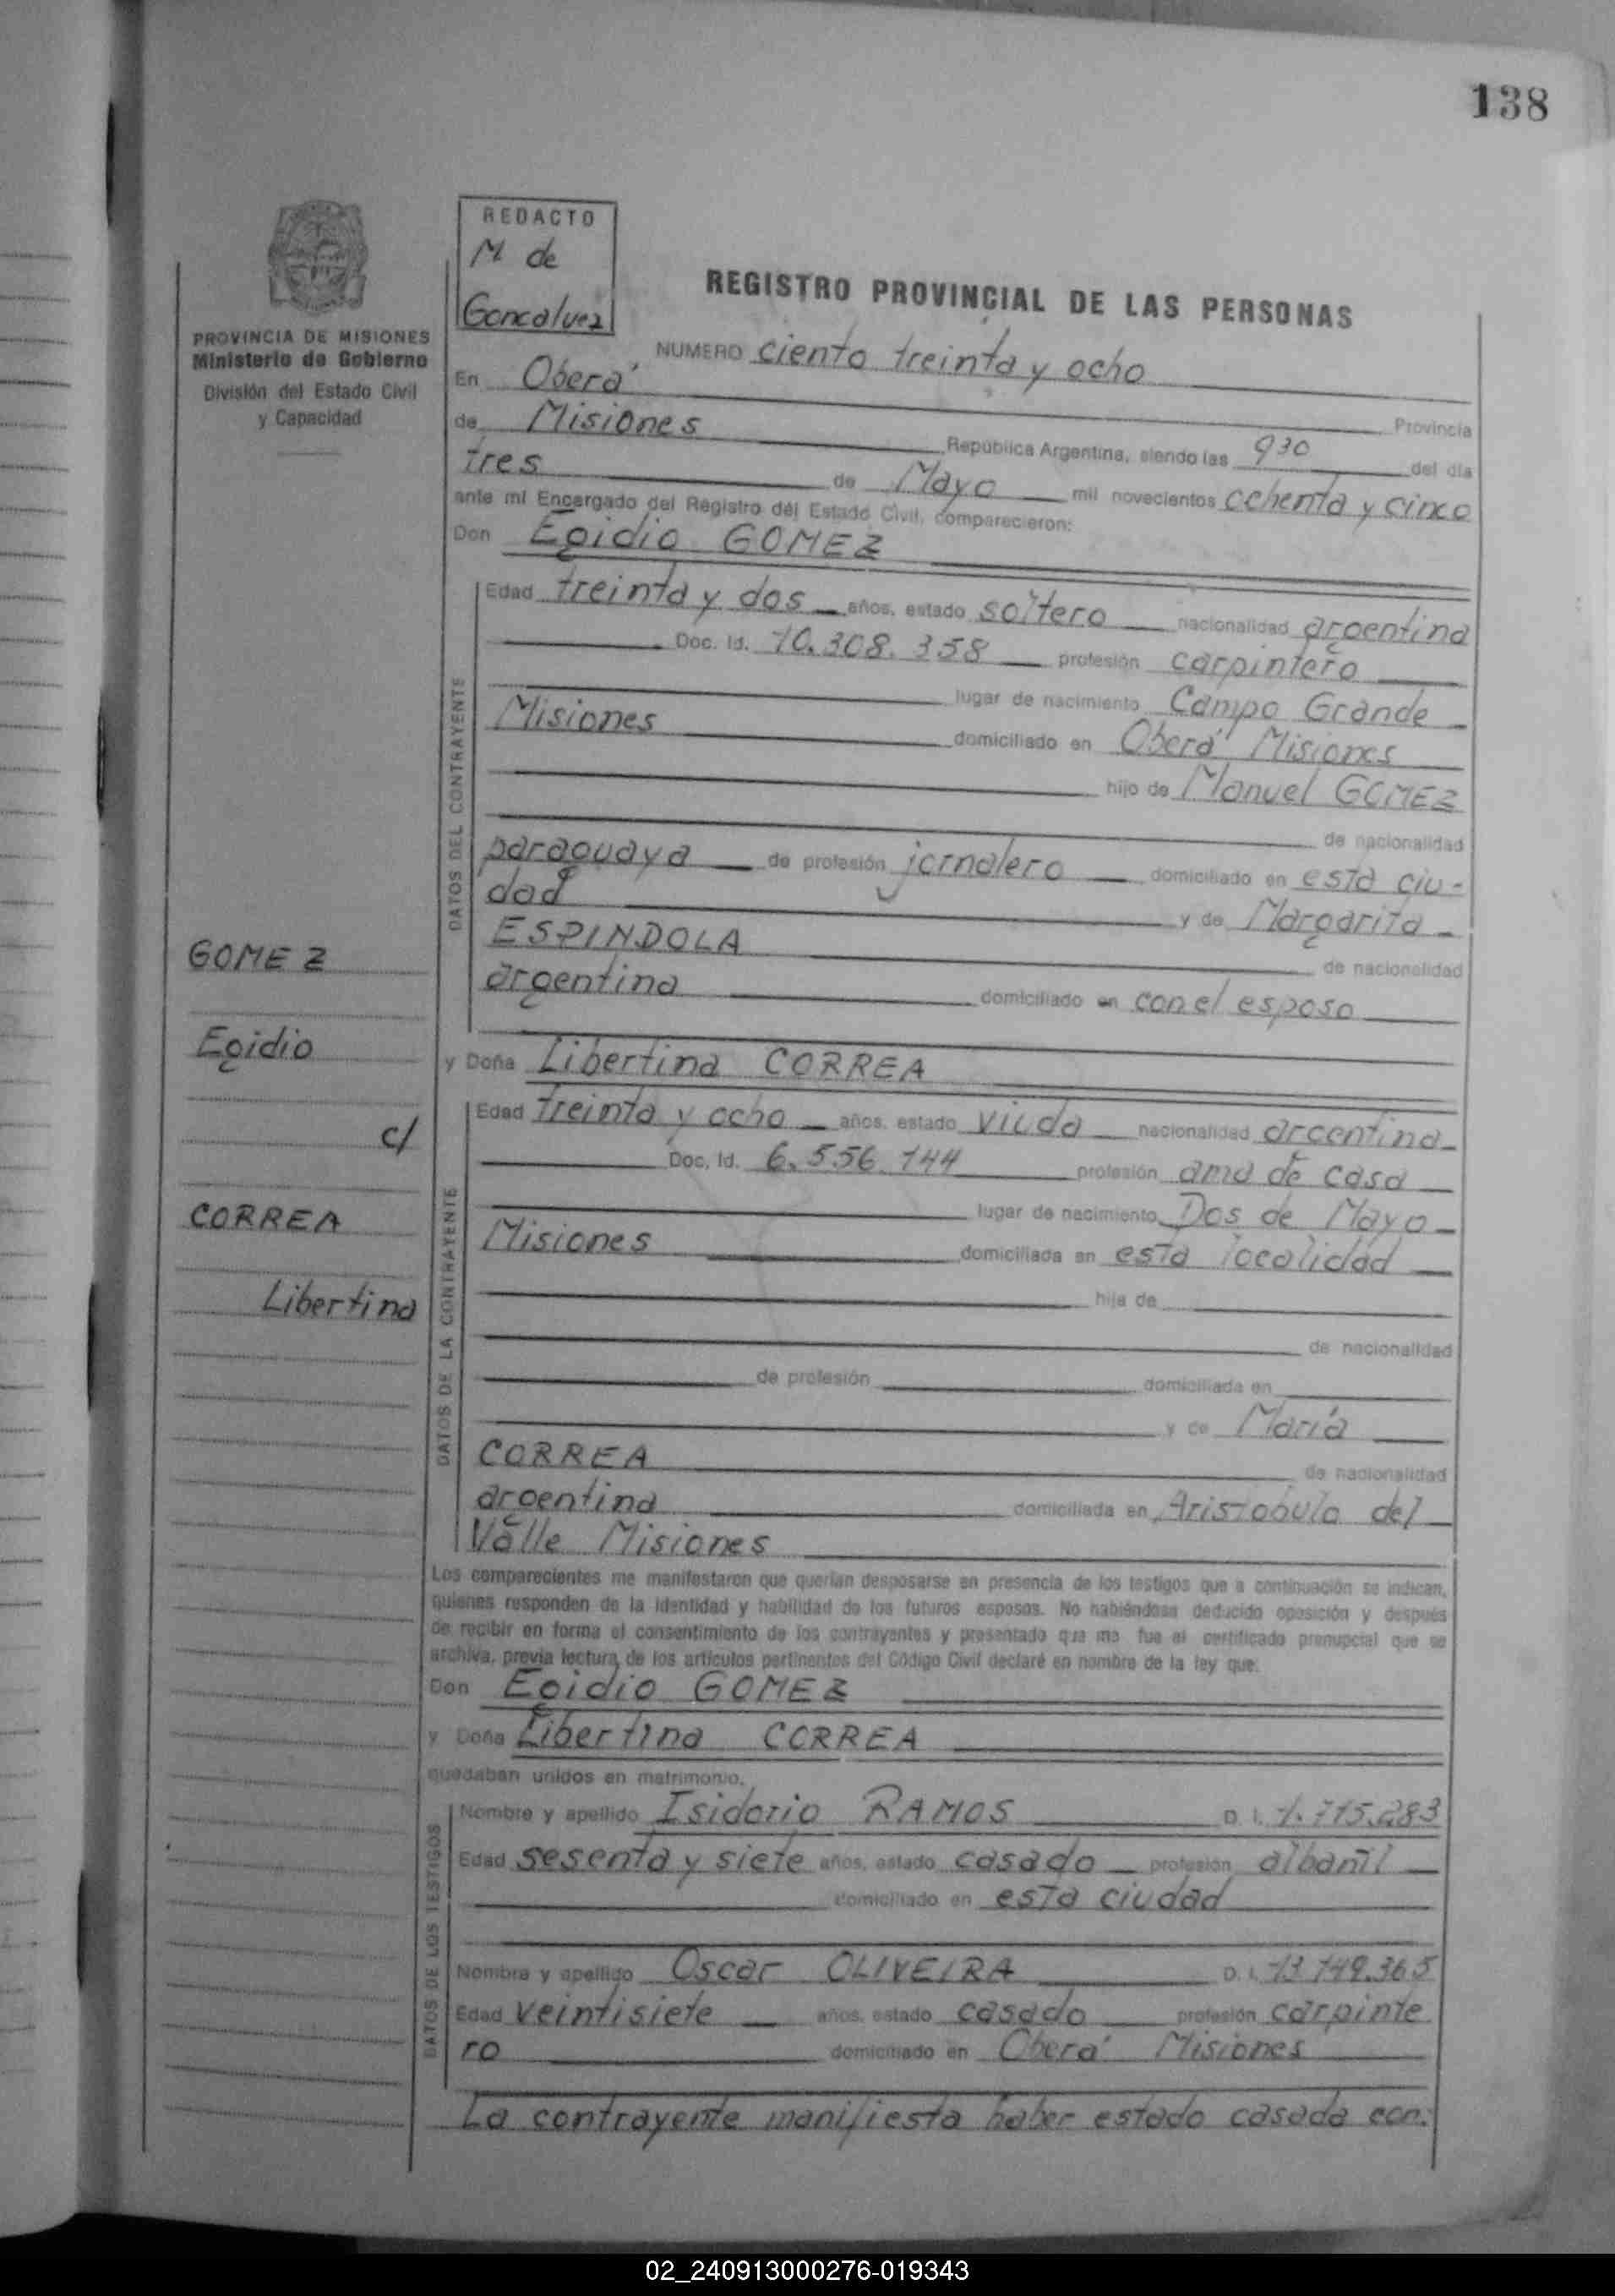 138
REDACTO
M de
Goncalvez
PROVINCIA DE MISIONES
Ministerio de Gobierno
División del Estado Civil
y Capacidad
REGISTRO PROVINCIAL DE LAS PERSONAS
NUMERO ciento treinta y ocho
En Oberá Provincia
de Misiones República Argentina, siendo las 930 del día
tres de Mayo mil novecientos ochenta y cinco
ante mí Encargado del Registro del Estado Civil, comparecieron:
Don Egidio GOMEZ
DATOS DEL CONTRAYENTE
Edad treinta y dos años, estado soltero nacionalidad argentina
Doc. Id. 10.308.358 profesión carpintero
lugar de nacimiento Campo Grande
Misiones domiciliado en Oberá Misiones
hijo de Manuel GOMEZ
de nacionalidad
paraguaya de profesión jornalero domiciliado en esta ciu-
dad y de Margarita
ESPINDOLA de nacionalidad
argentina domiciliado en con el esposo
GOMEZ
Egidio
c/
CORREA
Libertina
y Doña Libertina CORREA
DATOS DE LA CONTRAYENTE
Edad treinta y ocho años, estado viuda nacionalidad argentina
Doc. Id. 6.556.144 profesión ama de casa
lugar de nacimiento Dos de Mayo
Misiones domiciliada en esta localidad
hija de
de nacionalidad
de profesión domiciliada en
y de María
CORREA de nacionalidad
argentina domiciliada en Aristobulo del
Valle Misiones
Los comparecientes me manifestaron que querían desposarse en presencia de los testigos que a continuación se indican,
quienes responden de la identidad y habilidad de los futuros esposos. No habiéndose deducido oposición y después
de recibir en forma el consentimiento de los contrayentes y presentado que me fue el certificado prenupcial que se
archiva, previa lectura de los artículos pertinentes del Código Civil declaré en nombre de la ley que:
Don Egidio GOMEZ
y Doña Libertina CORREA
quedaban unidos en matrimonio.
DATOS DE LOS TESTIGOS
Nombre y apellido Isidorio RAMOS D. I. 1.715.283
Edad sesenta y siete años, estado casado profesión albañil
domiciliado en esta ciudad
Nombre y apellido Oscar OLIVEIRA D. I. 13 149.365
Edad veintisiete años, estado casado profesión carpinte
ro domiciliado en Oberá Misiones
La contrayente manifiesta haber estado casada con:
02_240913000276-019343